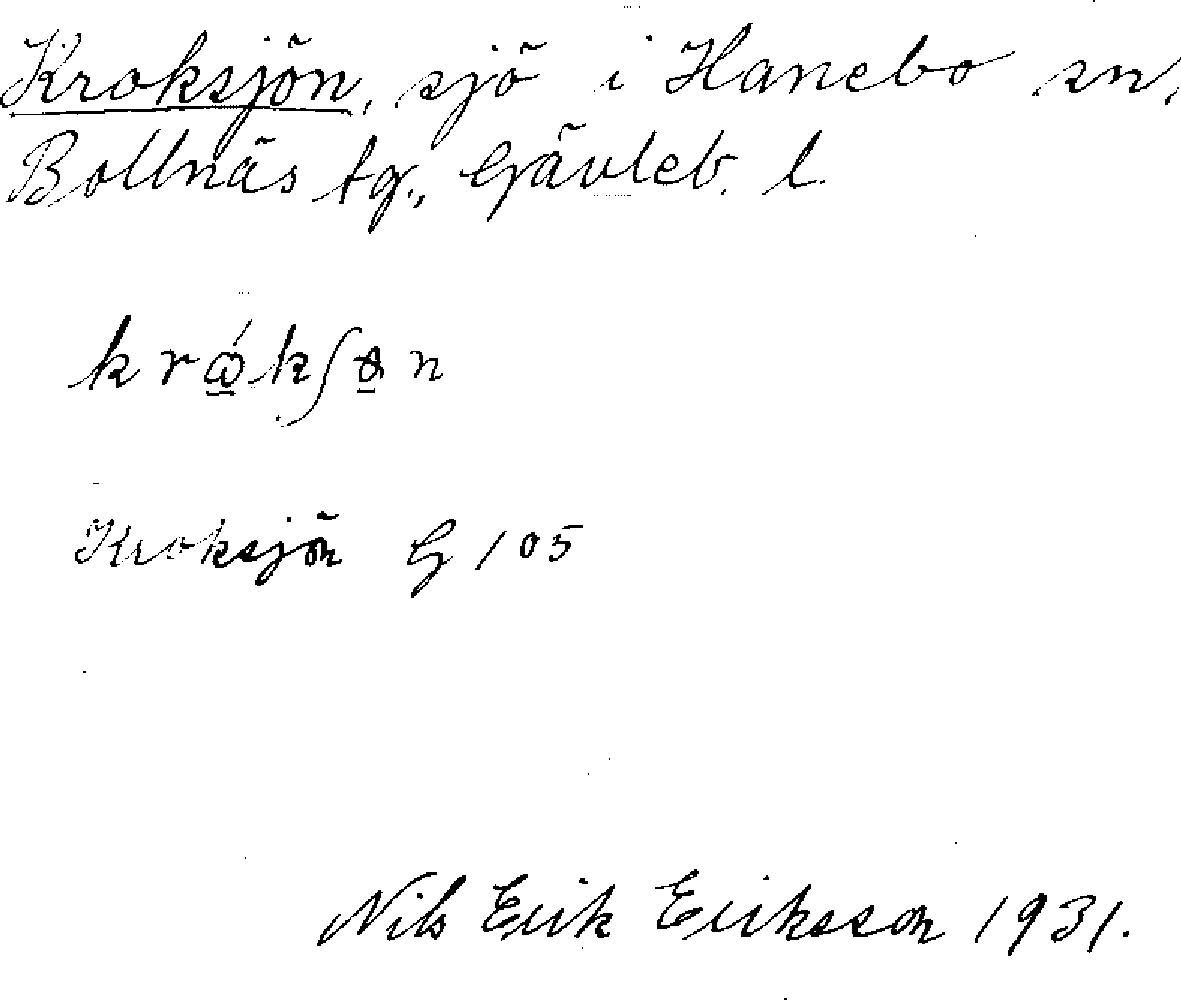 Kroksjön, sjö i Hanebo sn,
Bollnäs tg., Gävleb. l.
Kroksjön G 105
Nils Erik Eriksson 1931.